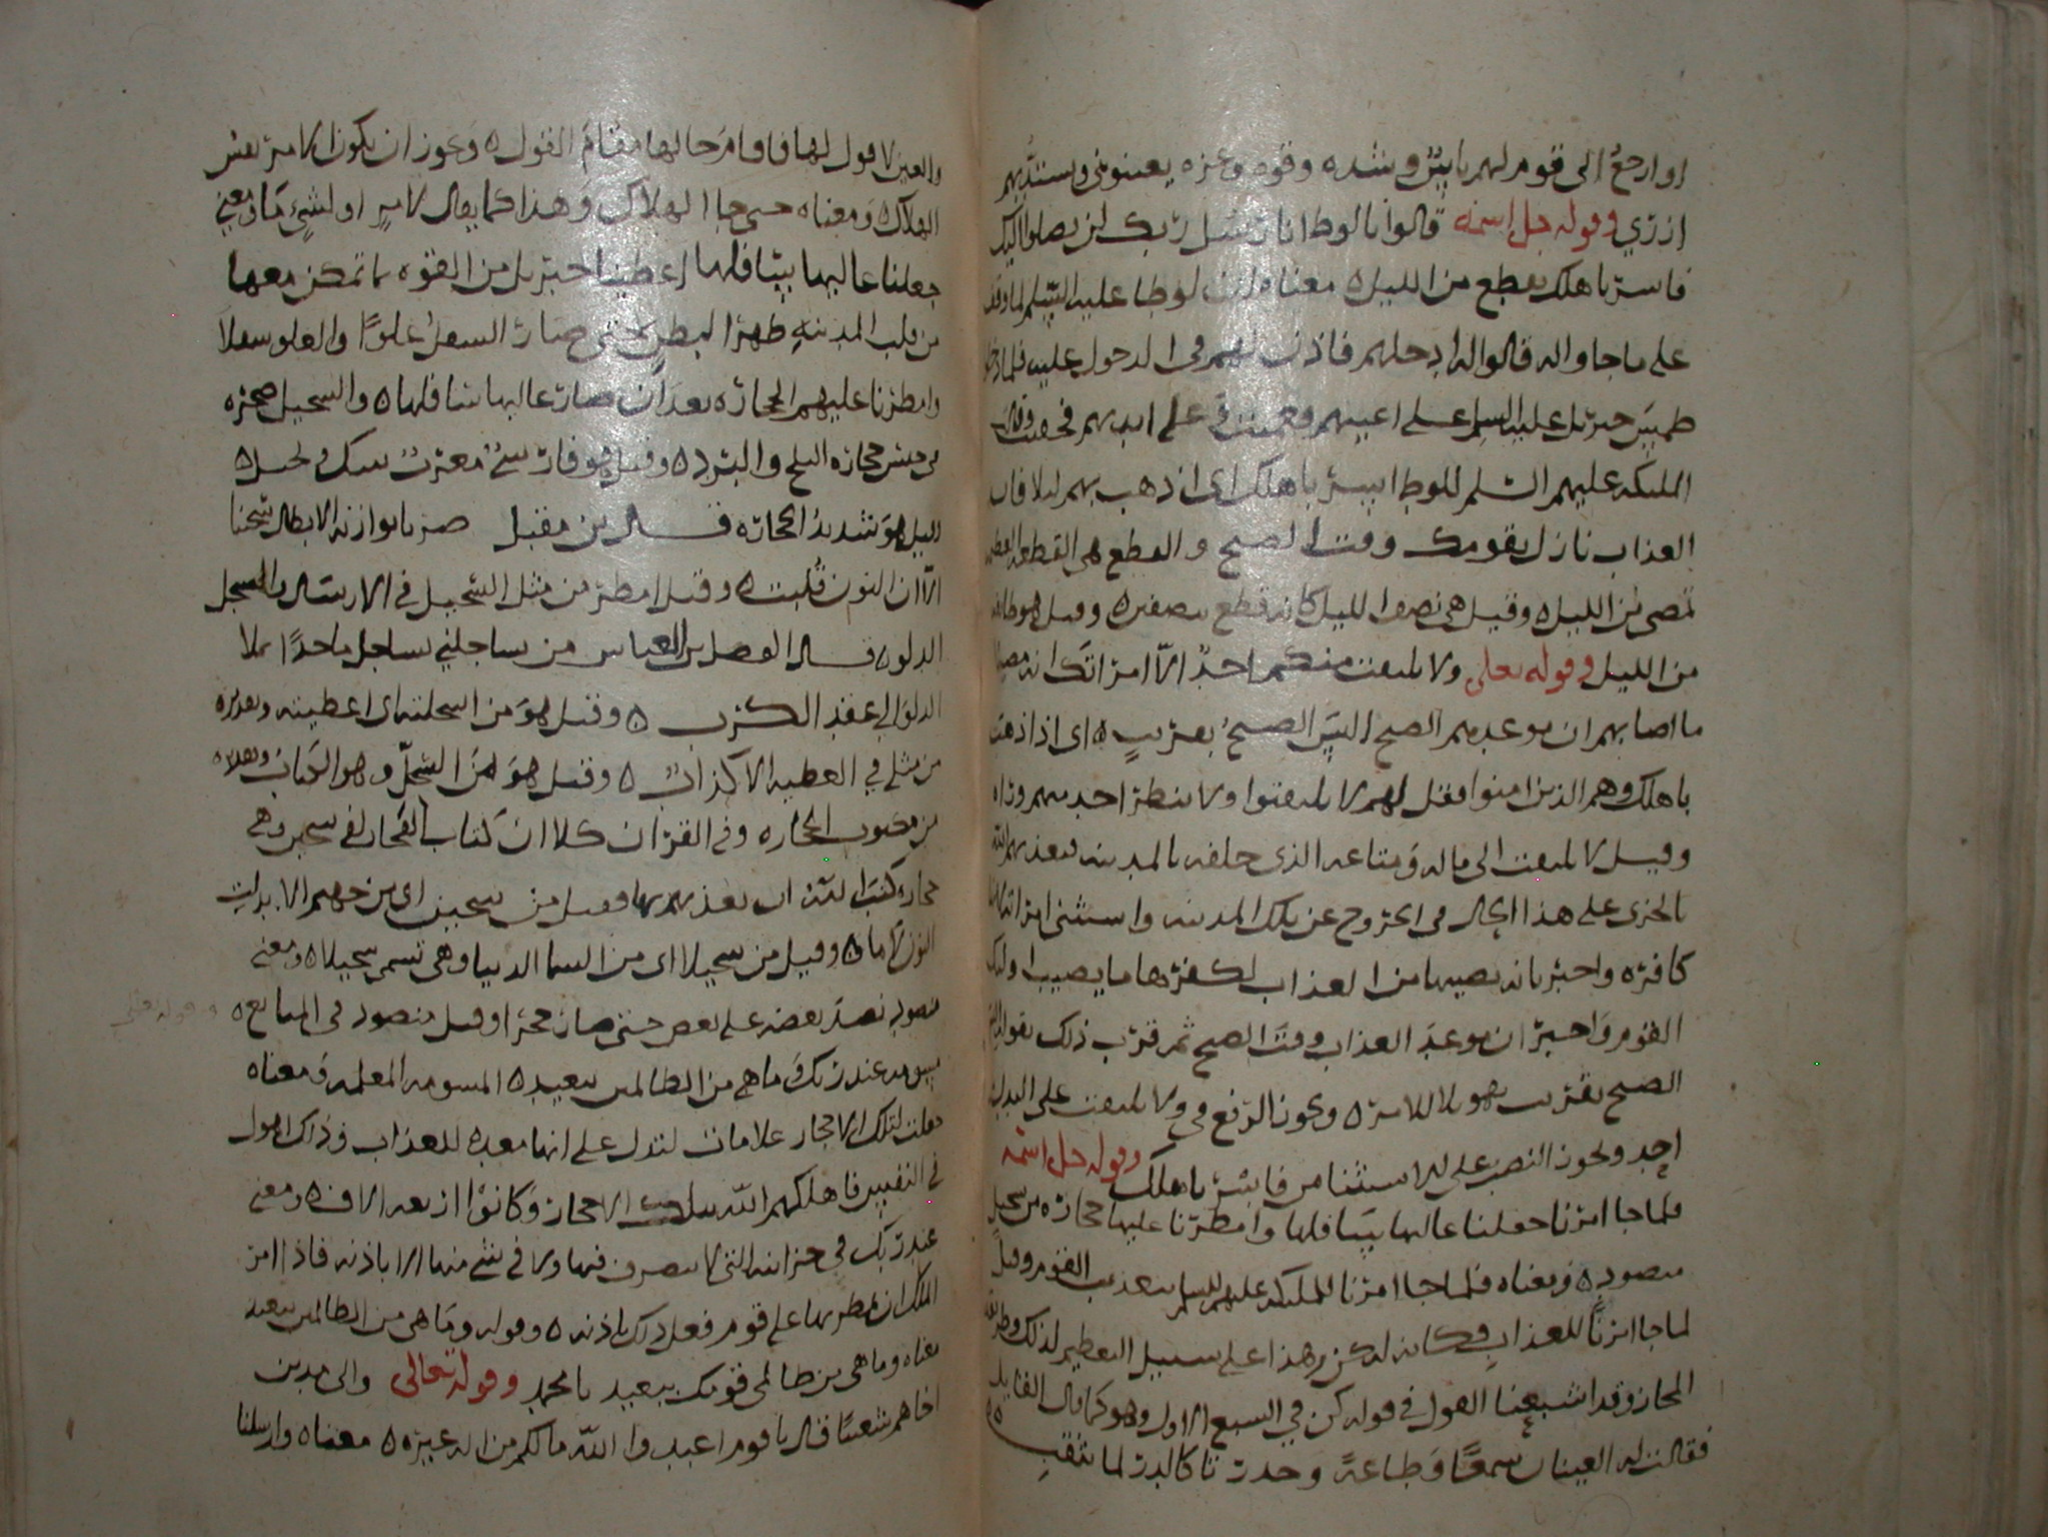 او ارجع الى قوم لهم باس وشده وقوه وعزه يعينونى ويشتد بهم
ازرى وقوله جل اسمه قالوا يا لوط انا رسل ربك لن يصلوا اليك
فاسر باهلك بقطع من الليل ٥ معناه ان لوطا عليه السلم لما وقف
على ما جاوا له قالوا له ادخلهم فاذن لهم فى الدخول عليه فلما
طمس جبريل عليه السلم على اعينهم على ايديهم
الملىكه عليهم السلم للوط اسر باهلك اى اذهب بهم ليلا فان
العذاب نازل بقومك وقت الصبح والقطع هى القطعه العظيمه
تمضى من الليل ٥ وقيل هى نصف الليل كانه قطع بنصفين ٥ وقيل هو طايفه
من الليل وقوله تعلى ولا يلتفت منكم احد الا امراتك انه مصيبها
ما اصابهم ان موعدهم الصبح اليس الصبح بقريب ٥ اى اذا ذهبت
باهلك وهم الذين امنوا فقل لهم لا يلتفتوا ولا ينظر احد منهم وراه
وقيل لا يلتفت الى ماله ومتاعه الذى خلفه بالمدينه
على هذا الحال فى الخروج عن تلك المدينه واستثنى امراته
كافره واخبر بانه يصيبها من العذاب لكفرها ما يصيب اوليك
القوم واخبر ان موعد العذاب وقت الصبح ثم قرب ذلك بقوله اليس
الصبح بقريب تهويلا للامر ٥ ويجوز الرفع فى ولا يلتفت على البدل من
احد ويجوز النصب على الاستثنا من فاسر باهلك وقوله جل اسمه
فلما جا امرنا جعلنا عاليها سافلها وامطرنا عليها حجاره من سجيل
منضود ٥ ومعناه فلما جا امرنا للملىكه عليهم السلم بعذاب القوم وقيل
لما جا امرنا للعذاب فكانه له كن وهذا على سبيل التعظيم لذلك وطريقه
المجاز وقد اشبعنا القول فى قوله كن فى السبع الاول وهو كما قال القايل
فقالت له العينان سمعا وطاعة وحدرتا كالدر لما يثقب
والعين لا قول لها فاقام حالها مقام القول ٥ ويجوز ان يكون الامر نفس
الهلاك ٥ ومعناه حتى جا الهلاك وهذا كما يقال لامر او لشى ما ومعنى
جعلنا عاليها سافلها اعطينا جبريل من القوه ما تمكن معها
من قلب المدينه ظهرا لبطن حتى صار السفل علوا والعلو سفلا
وامطرنا عليهم الحجاره بعد ان صار عاليها سافلها ٥ والسجيل صخره
من جنس حجاره الثلج والبرد ٥ وقيل هو فارسى معرب سنك وكل ٥
وقيل هو شديد الحجاره قال بن مقبل ضربا تواز به الابطال سجينا
الا ان النون قلبت ٥ وقيل امطر من مثل السجيل فى الارسال والسجل
الدلو ٥ قال الفضل بن العباس من يساجلنى يساجل ماجدا يملا
الدلو الى عقد الكرب ٥ وقيل هو من اسجلته اى اعطيته وتقديره
من مثلى فى العطيه الاكذاب ٥ وقيل هو من السجل وهو الكتاب وتقديره
من مكتوب الحجاره وفى القران كلا ان كتاب الفجار لفى سجين وهى
حجاره كتب الله ان يعذبهم بها وقيل من سجين اى من جهنم الا ابدلت
النون لاما ٥ وقيل من سجيل اى من السما الدنيا وهى تسمى سجيلا ٥ ومعنى
منضود نضد بعضه على بعض حتى صار حجرا وقيل منضود فى التتابع ٥ وقوله تعلى
مسومه عند ربك وما هى من الظالمين ببعيد ٥ المسومه المعلمه ومعناه
جعلت لتلك الاحجار علامات لتدل على انها معده للعذاب وذاك اهول
فى النفس فاهلكهم الله بتلك الاحجار وكانوا اربعه الاف ٥ ومعنى
عند ربك فى خزانته التى لا يتصرف فيها ولا فى شى منها الا باذنه فاذا امر
الملك ان يمطر بها على قوم فعل ذلك باذنه ٥ وقوله وما هى من الظالمين ببعيد
معناه وما هى من ظالمى قومك ببعيد يا محمد وقوله تعالى والى مدين
اخاهم شعيبا قال يا قوم اعبدوا الله ما لكم من اله غيره ٥ معناه وارسلنا